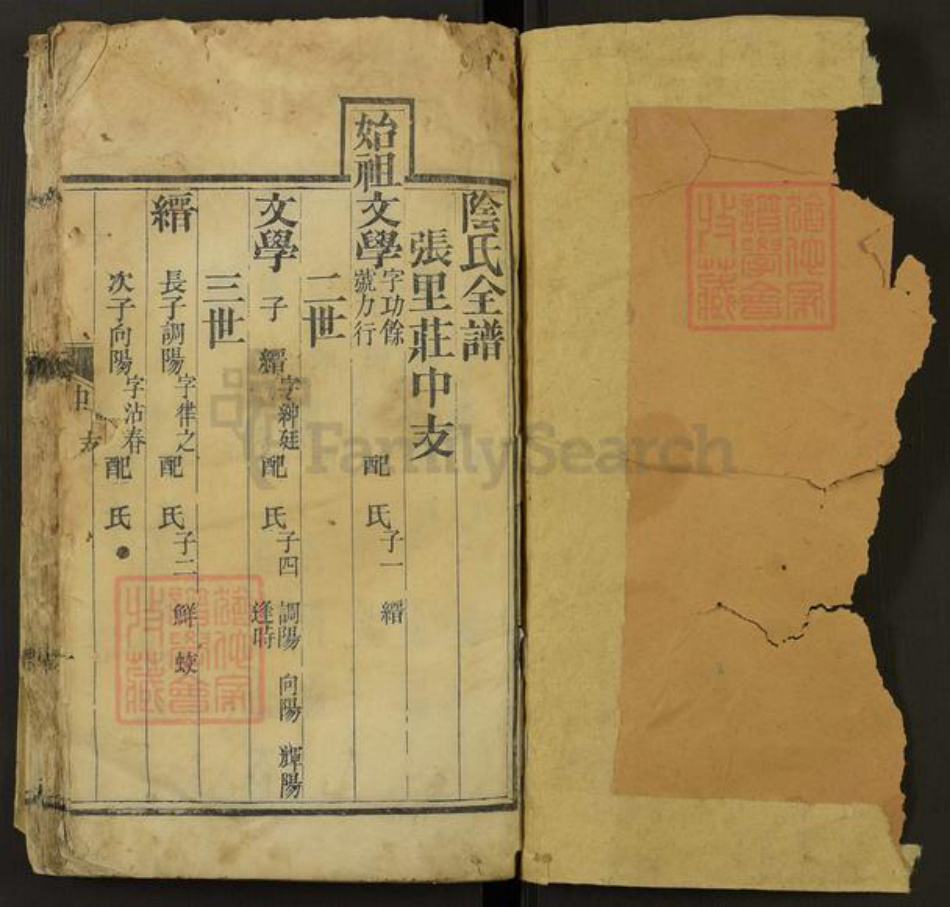 陰氏全譜
張里莊中支
始祖文學 字功餘 號力行 配 氏 子一 縉
二世
文學 子 縉 字紳廷 配 氏 子四 調陽 向陽 輝陽 逢時
三世
縉 長子調陽 字律之 配 氏 子二 鮮 蛟
次子向陽 字沾春 配 氏
中支
FamilySearch